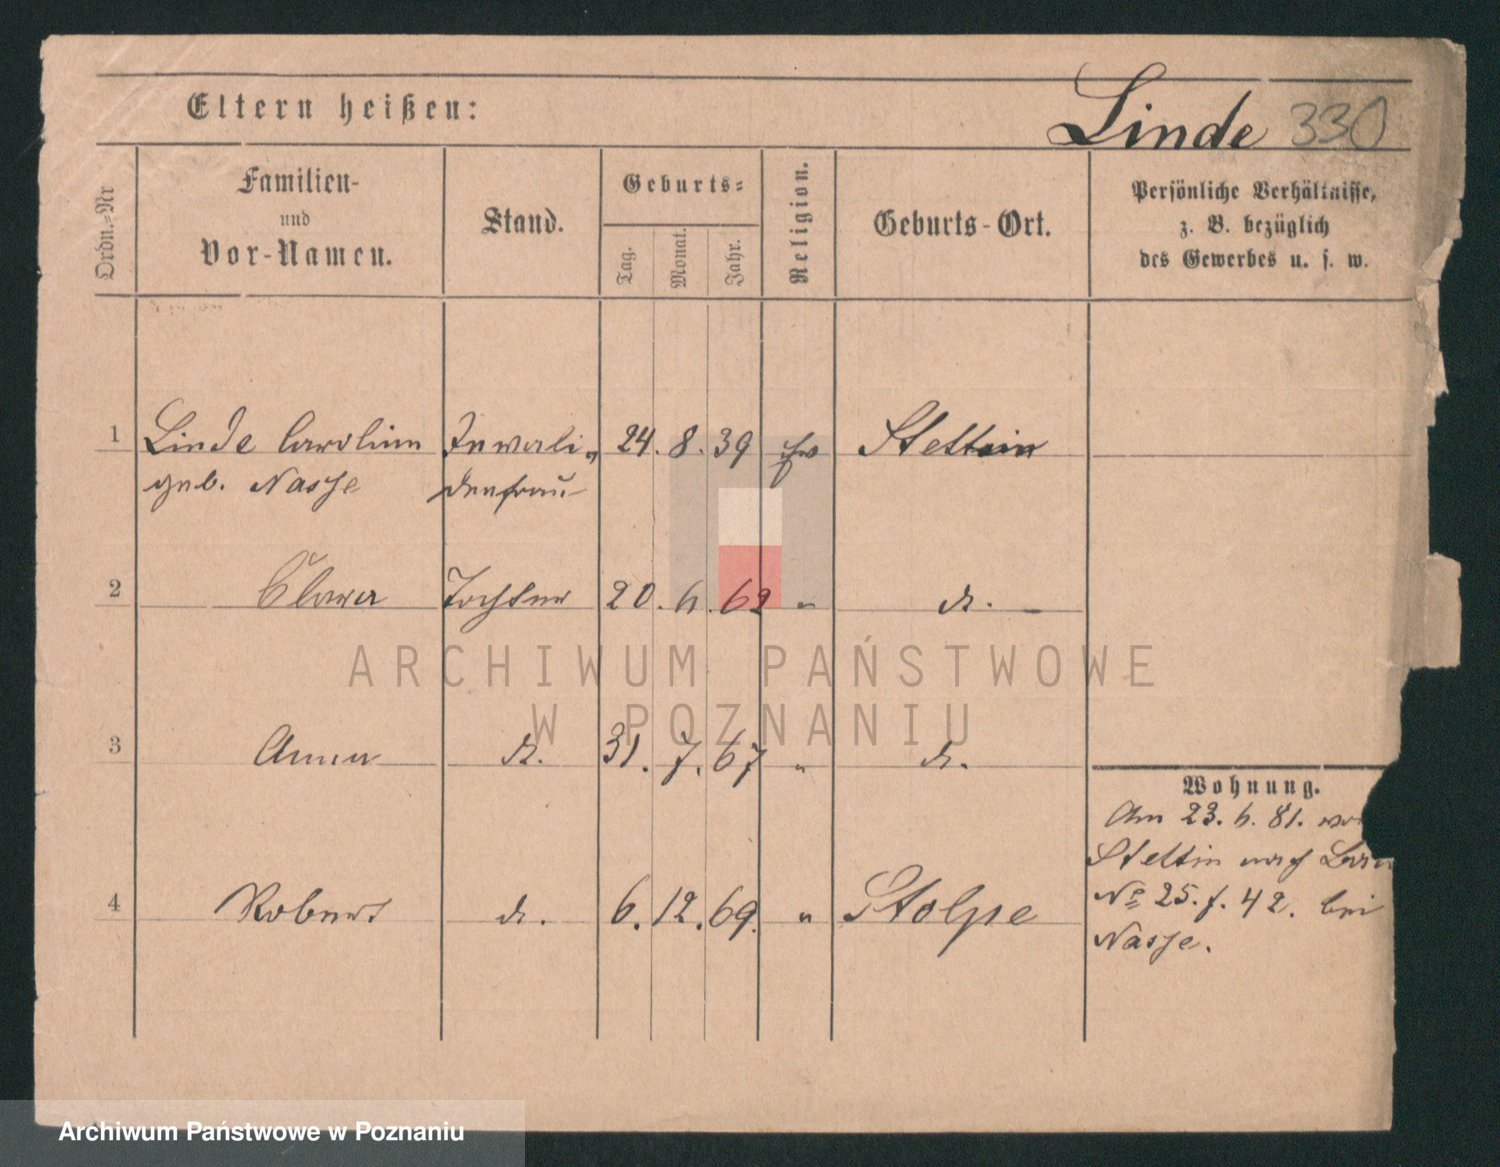 Eltern heißen:
Linde 330
Ordn.-Nr
Familien-
und
Vor-Namen.
Stand.
Geburts-
Tag.
Monat.
Jahr.
Religion.
Geburts-Ort.
Persönliche Verhältnisse,
z. B. bezüglich
des Gewerbes u. s. w.
1 Linde Caroline Invali- 24. 8. 39 Stettin
geb. Nasse denfrau
2 Clara Tochter 20. 6. 62 " do.
ARCHIWUM PAŃSTWOWE
W POZNANIU
3 Anna do. 31. 7. 67 " do.
Wohnung.
Am 23. 6. 81. von
Stettin nach
4 Robert do. 6. 12. 69. " Stolpe
No 25. f. 42. bei
Nasse.
Archiwum Państwowe w Poznaniu